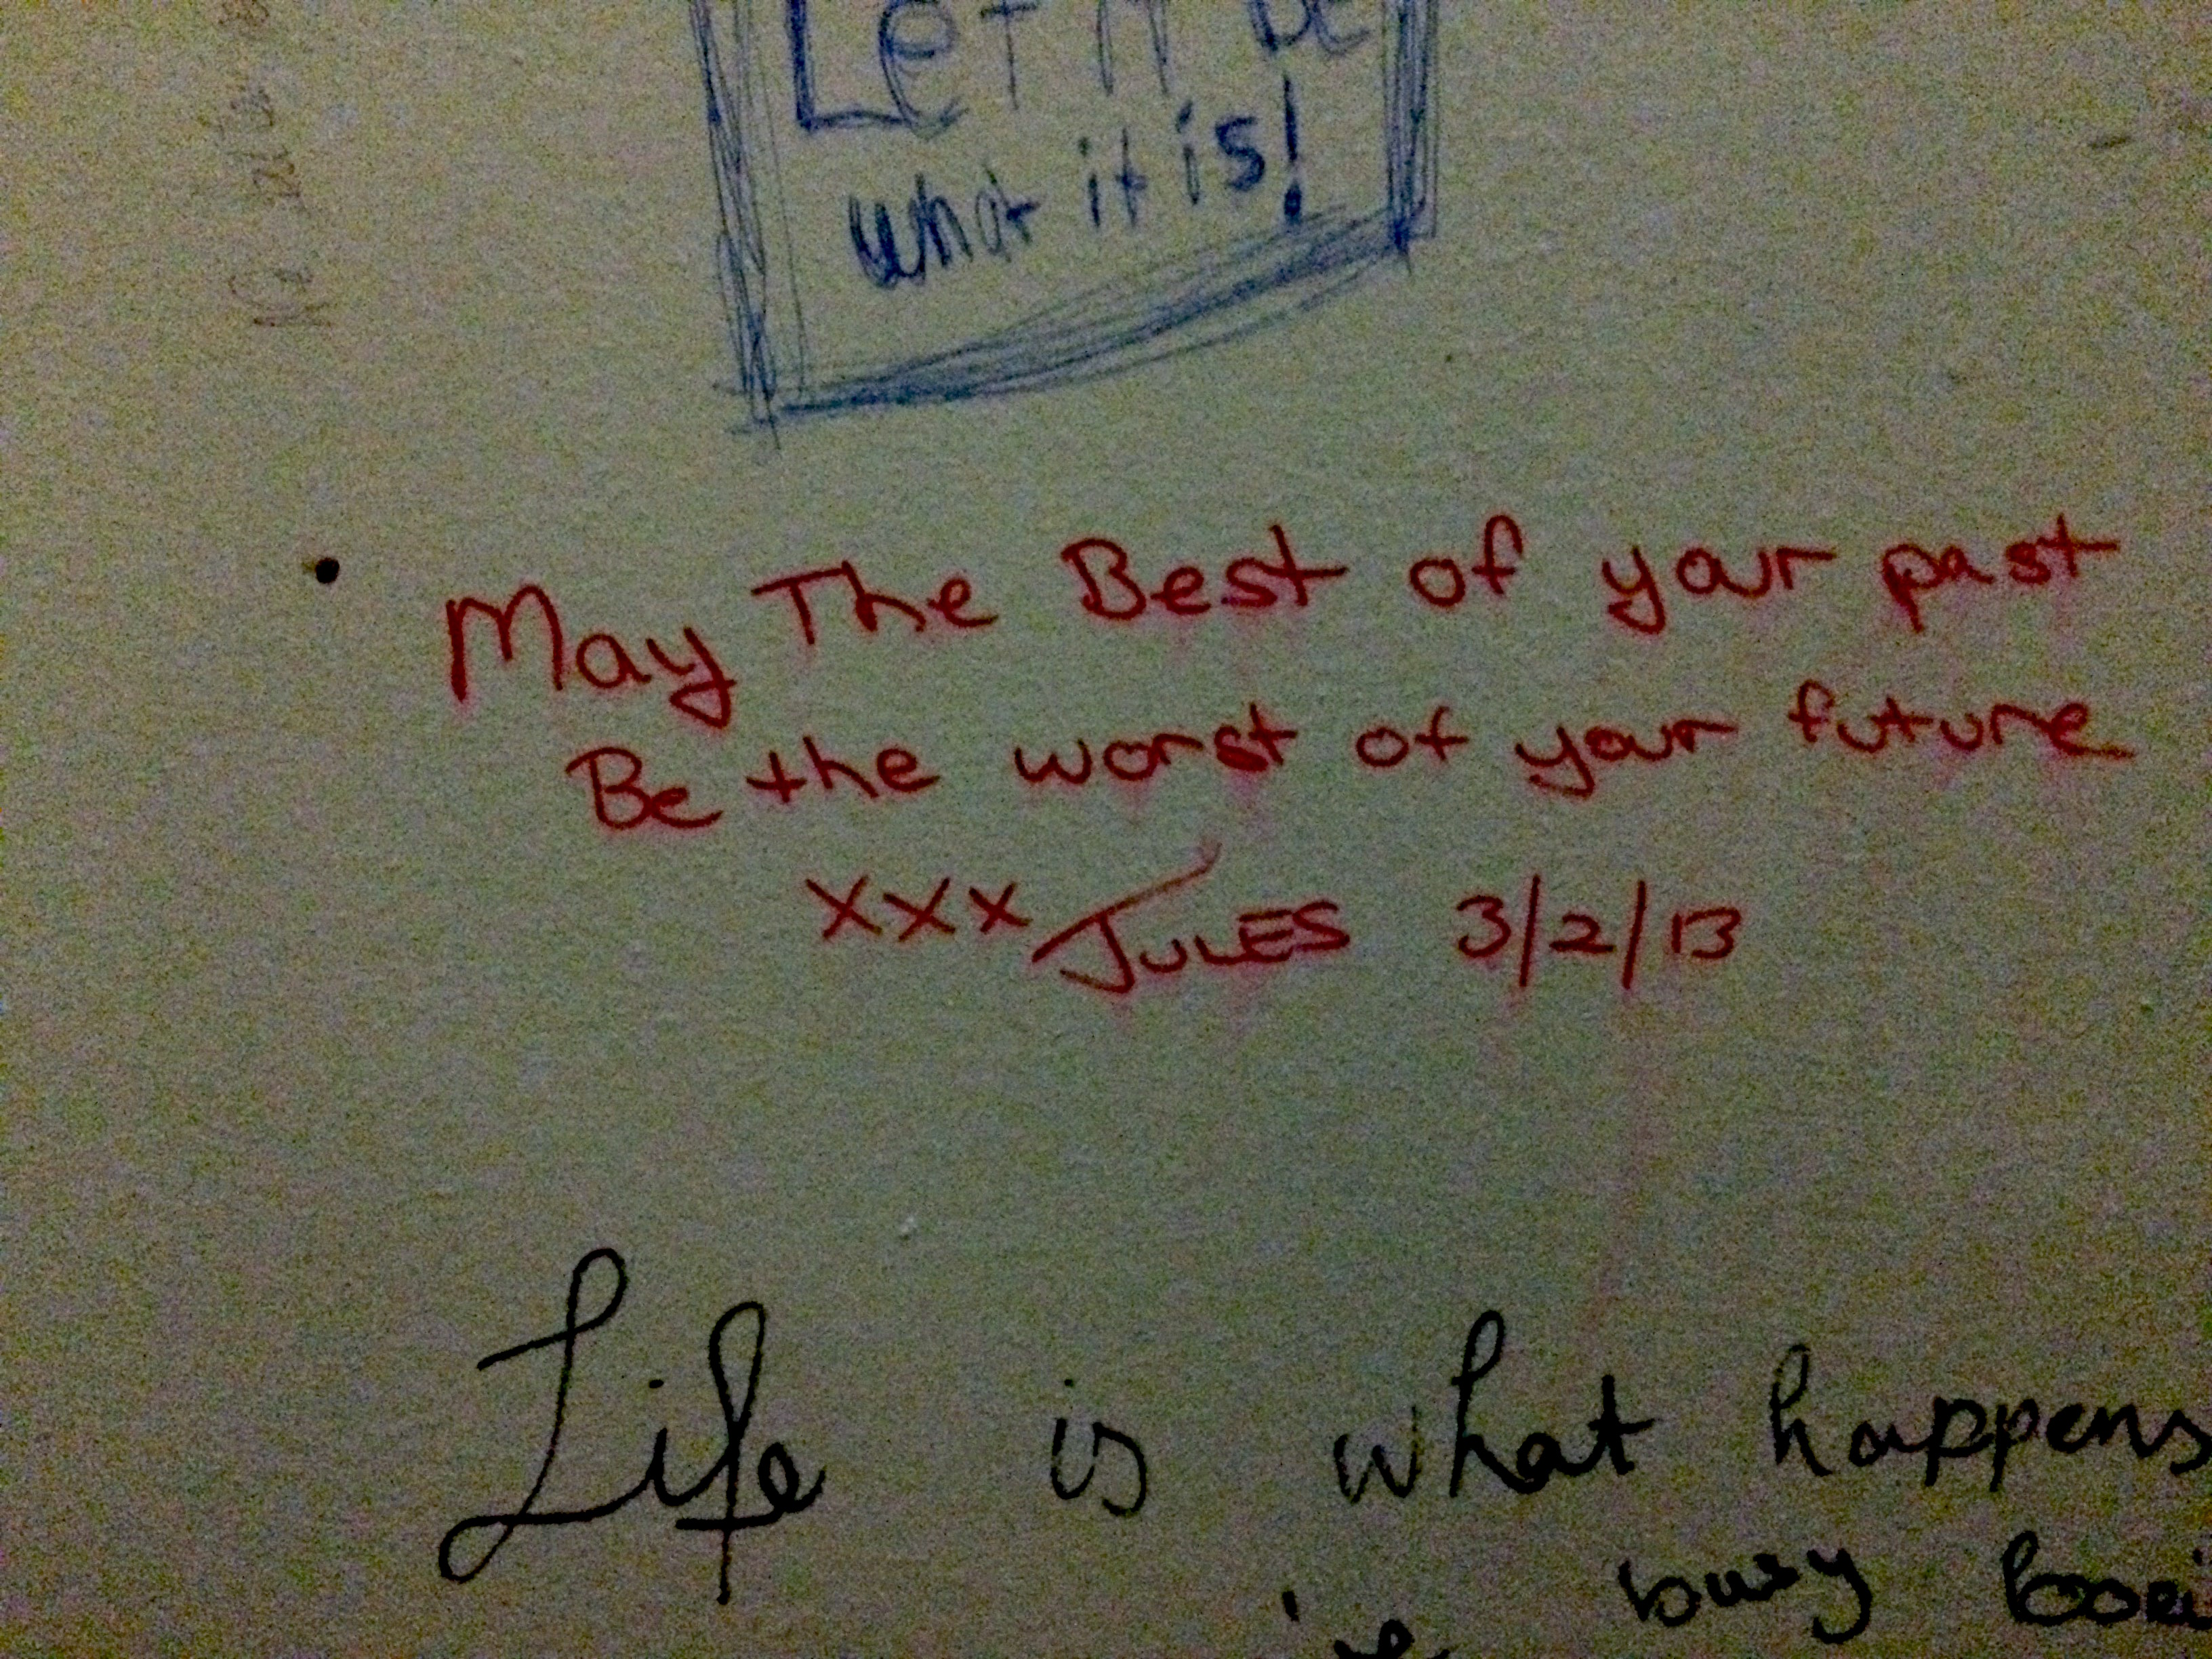 Let it be
what it is!
May The Best of your past
Be the worst of your future
xxx JULES 3/2/13
Life is what happens
busy